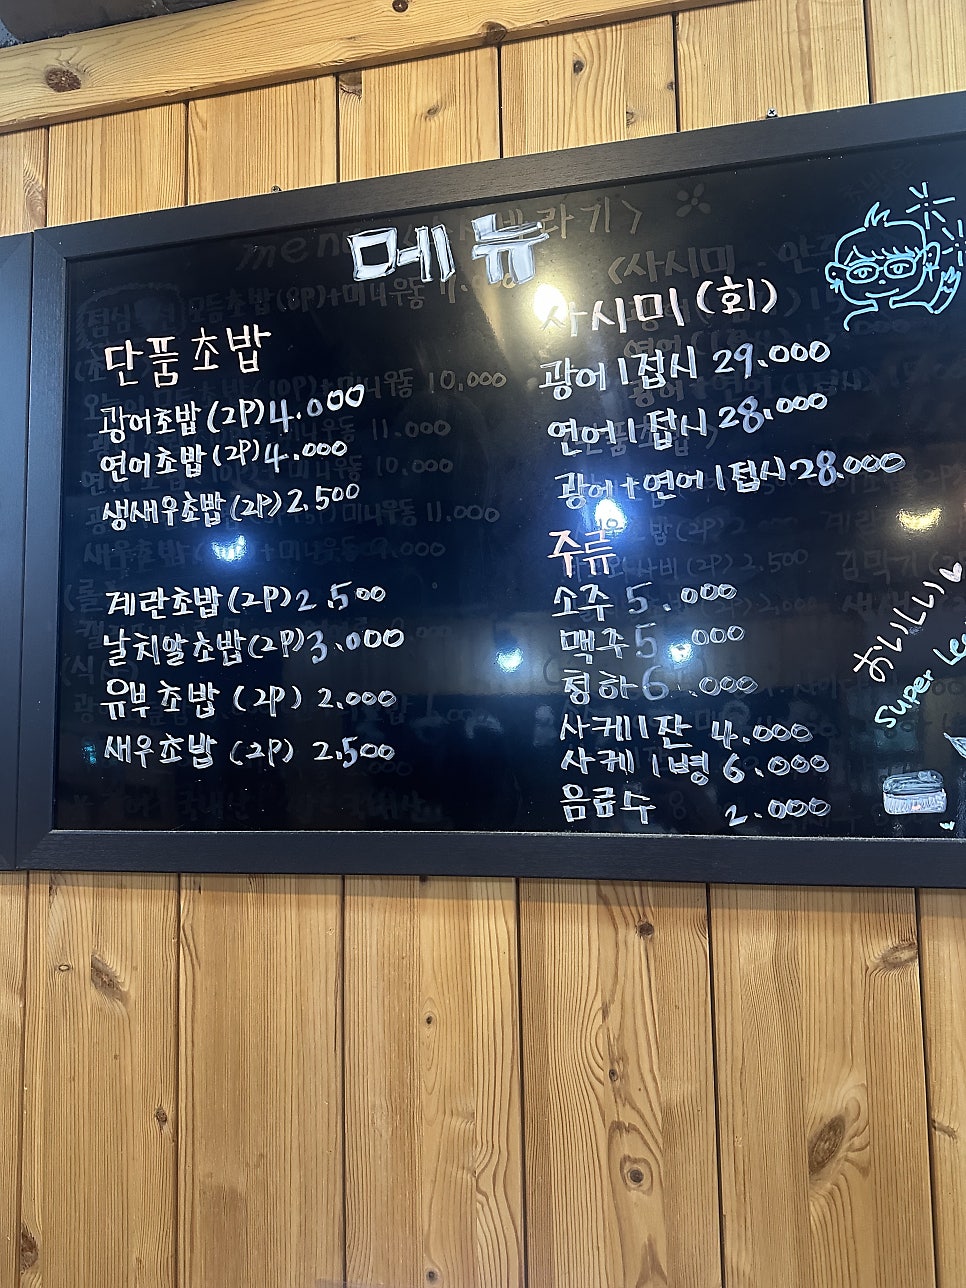 메뉴
단품초밥
광어초밥(2P)4.000
연어초밥(2P)4.000
생새우초밥(2P)2.500
계란초밥(2P)2.500
날치알초밥(2P)3.000
유부초밥 (2P) 2.000
새우초밥 (2P) 2.500
사시미(회)
광어 1접시 29.000
연어 1접시 28.000
광어+연어 1접시 28.000
주류
소주 5.000
맥주 5.000
청하 6.000
사케 1잔 4.000
사케 1병 6.000
음료수 2.000
おいしい
super